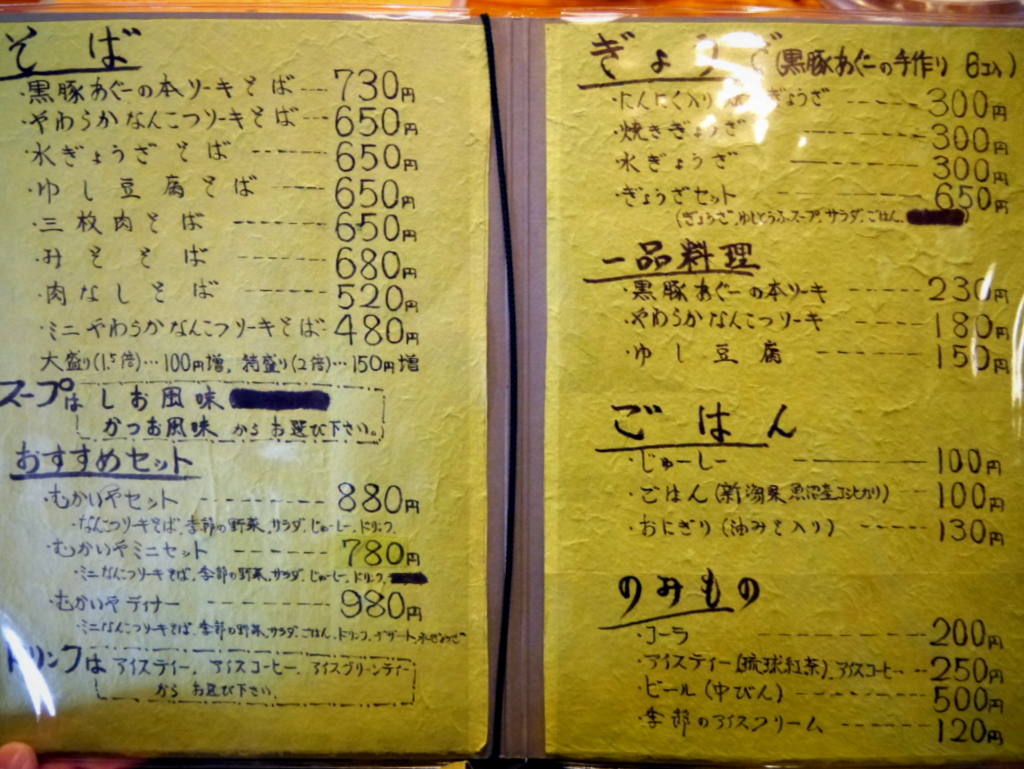 そば
・黒豚あぐーの本ソーキそば --- 730円
・やわらかなんこつソーキそば --- 650円
・水ぎょうざそば ------ 650円
・ゆし豆腐そば ----- 650円
・三枚肉そば ------- 650円
・みそそば ------- 680円
・肉なしそば ------ 520円
・ミニやわらかなんこつソーキそば- 480円
大盛り(1.5倍)…100円増, 特盛り(2倍)…150円増
スープは しお風味
かつお風味 からお選び下さい。
おすすめセット
・むかいやセット -------- 880円
・なんこつソーキそば, 季節の野菜, サラダ, じゅーしー, ドリンク
・むかいやミニセット ------ 780円
・ミニなんこつソーキそば, 季節の野菜, サラダ, じゅーしー, ドリンク,
・むかいやディナー -------- 980円
・ミニなんこつソーキそば, 季節の野菜, サラダ, ごはん, ドリンク, デザート, 水ぎょうざ
ドリンクは アイスティー, アイスコーヒー, アイスグリーンティー
から お選び下さい。
ぎょうざ(黒豚あぐーの手作り 6コ入)
・にんにく入り ぎょうざ ----- 300円
・焼きぎょうざ -------- 300円
・水ぎょうざ -------- 300円
・ぎょうざセット ------- 650円
(ぎょうざ, ゆしとうふスープ, サラダ, ごはん, )
一品料理
・黒豚あぐーの本ソーキ ----- 230円
・やわらかなんこつソーキ ----- 180円
・ゆし豆腐 ------- 150円
ごはん
・じゅーしー -------- 100円
・ごはん(新潟県魚沼産コシヒカリ) --- 100円
・おにぎり(油みそ入り) ----- 130円
のみもの
・コーラ --------- 200円
・アイスティー(琉球紅茶), アイスコーヒー -- 250円
・ビール(中びん) -------- 500円
・季節のアイスクリーム ------ 120円